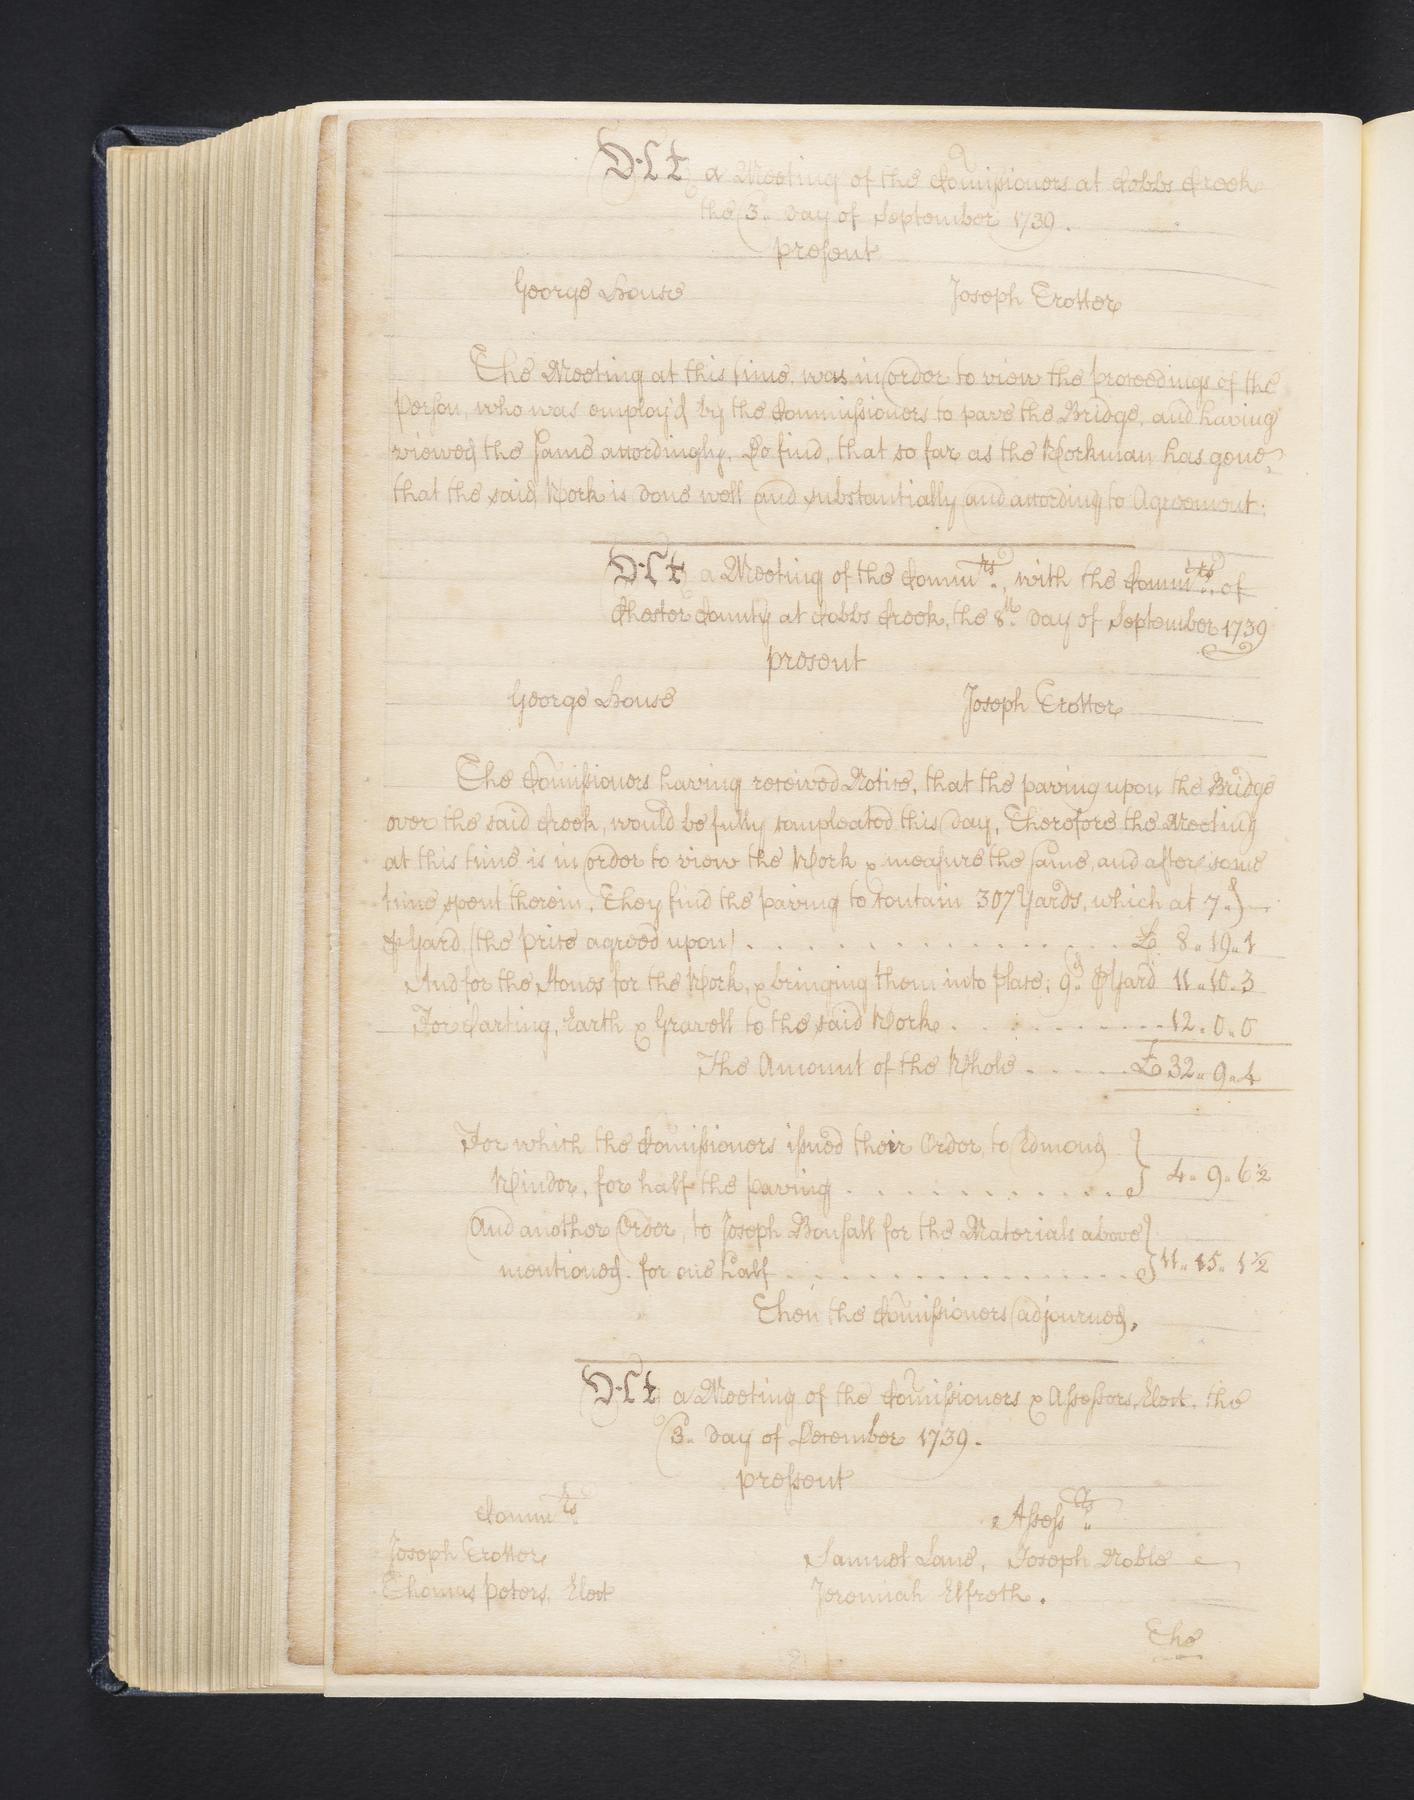 At a Meeting of the Com̃issioners at Cobbs Creek
the 3.. Day of September 1739.
present
George House Joseph Trotter
The Meeting at this time, was in order to view the proceedings of the
person, who was employ'd by the Commissioners to pave the Bridge, and having
viewed the same accordingly, Do find, that so far as the Workman has gone,
that the said Work is done well and substantially and according to Agreement.
At a Meeting of the Commrs., with the Commrs. of
Chester County at Cobbs Creek, the 8th. Day of September 1739
present
George House Joseph Trotter
The Com̃issioners having received Notice, that the paving upon the Bridge
over the said Creek, would be fully compleated this Day, Therefore the Meeting
at this time is in order to view the Work & measure the same, and after some
time spent therein, They find the paving to contain 307 Yards, which at 7d.
⅌ Yard (the price agreed upon) . . . . . . . . . . £ 8 .. 19 .. 1
And for the Stones for the Work, & bringing them into place; 9d. ⅌ Yard 11 .. 10 .. 3
For Carting, Earth & Gravell to the said Work . . . . . . 12 .. 0 .. 0
The Amount of the Whole . . . . £ 32 .. 9 .. 4
For which the Com̃issioners issued their Order, to Edmond
Winder, for half the paving . . . . . . . . . . } 4 .. 9 .. 6 ½
And another Order, to Joseph Bonsall for the Materials above
mentioned. for one half . . . . . . . . . . } 11 .. 15 .. 1 ½
Then the Com̃issioners adjourned.
At a Meeting of the Com̃issioners & Assessors, Elect, the
3.. Day of December 1739.
present
Commrs. Assessrs.
Joseph Trotter Samuel Lane, Joseph Noble
Thomas Peters, Elect Jeremiah Elfreth.
The